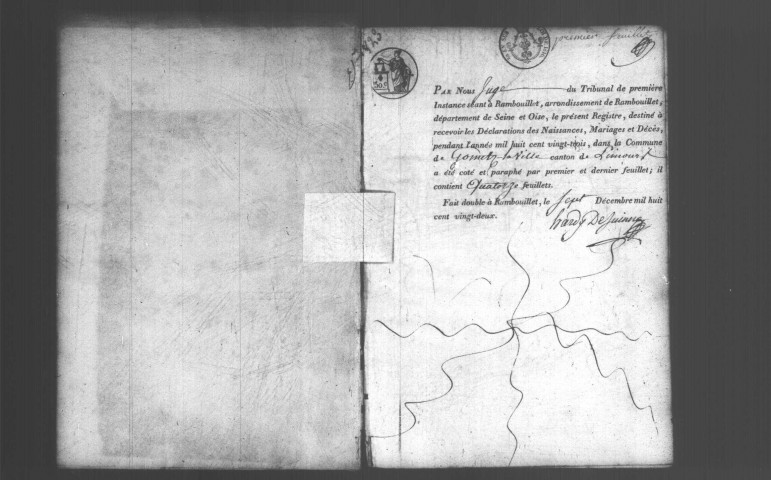 1823
premier feuillet
50 c
PAR NOUS Juge du Tribunal de première
Instance séant à Rambouillet, arrondissement de Rambouillet,
département de Seine et Oise, le présent Registre, destiné à
recevoir les Déclarations des Naissances, Mariages et Décès,
pendant l'année mil huit cent vingt-trois, dans la Commune
de Gometz la Ville canton de Limours
a été coté et paraphé par premier et dernier feuillet; il
contient Quatorze feuillets.
Fait double à Rambouillet, le Sept Décembre mil huit
cent vingt-deux.
hardy De